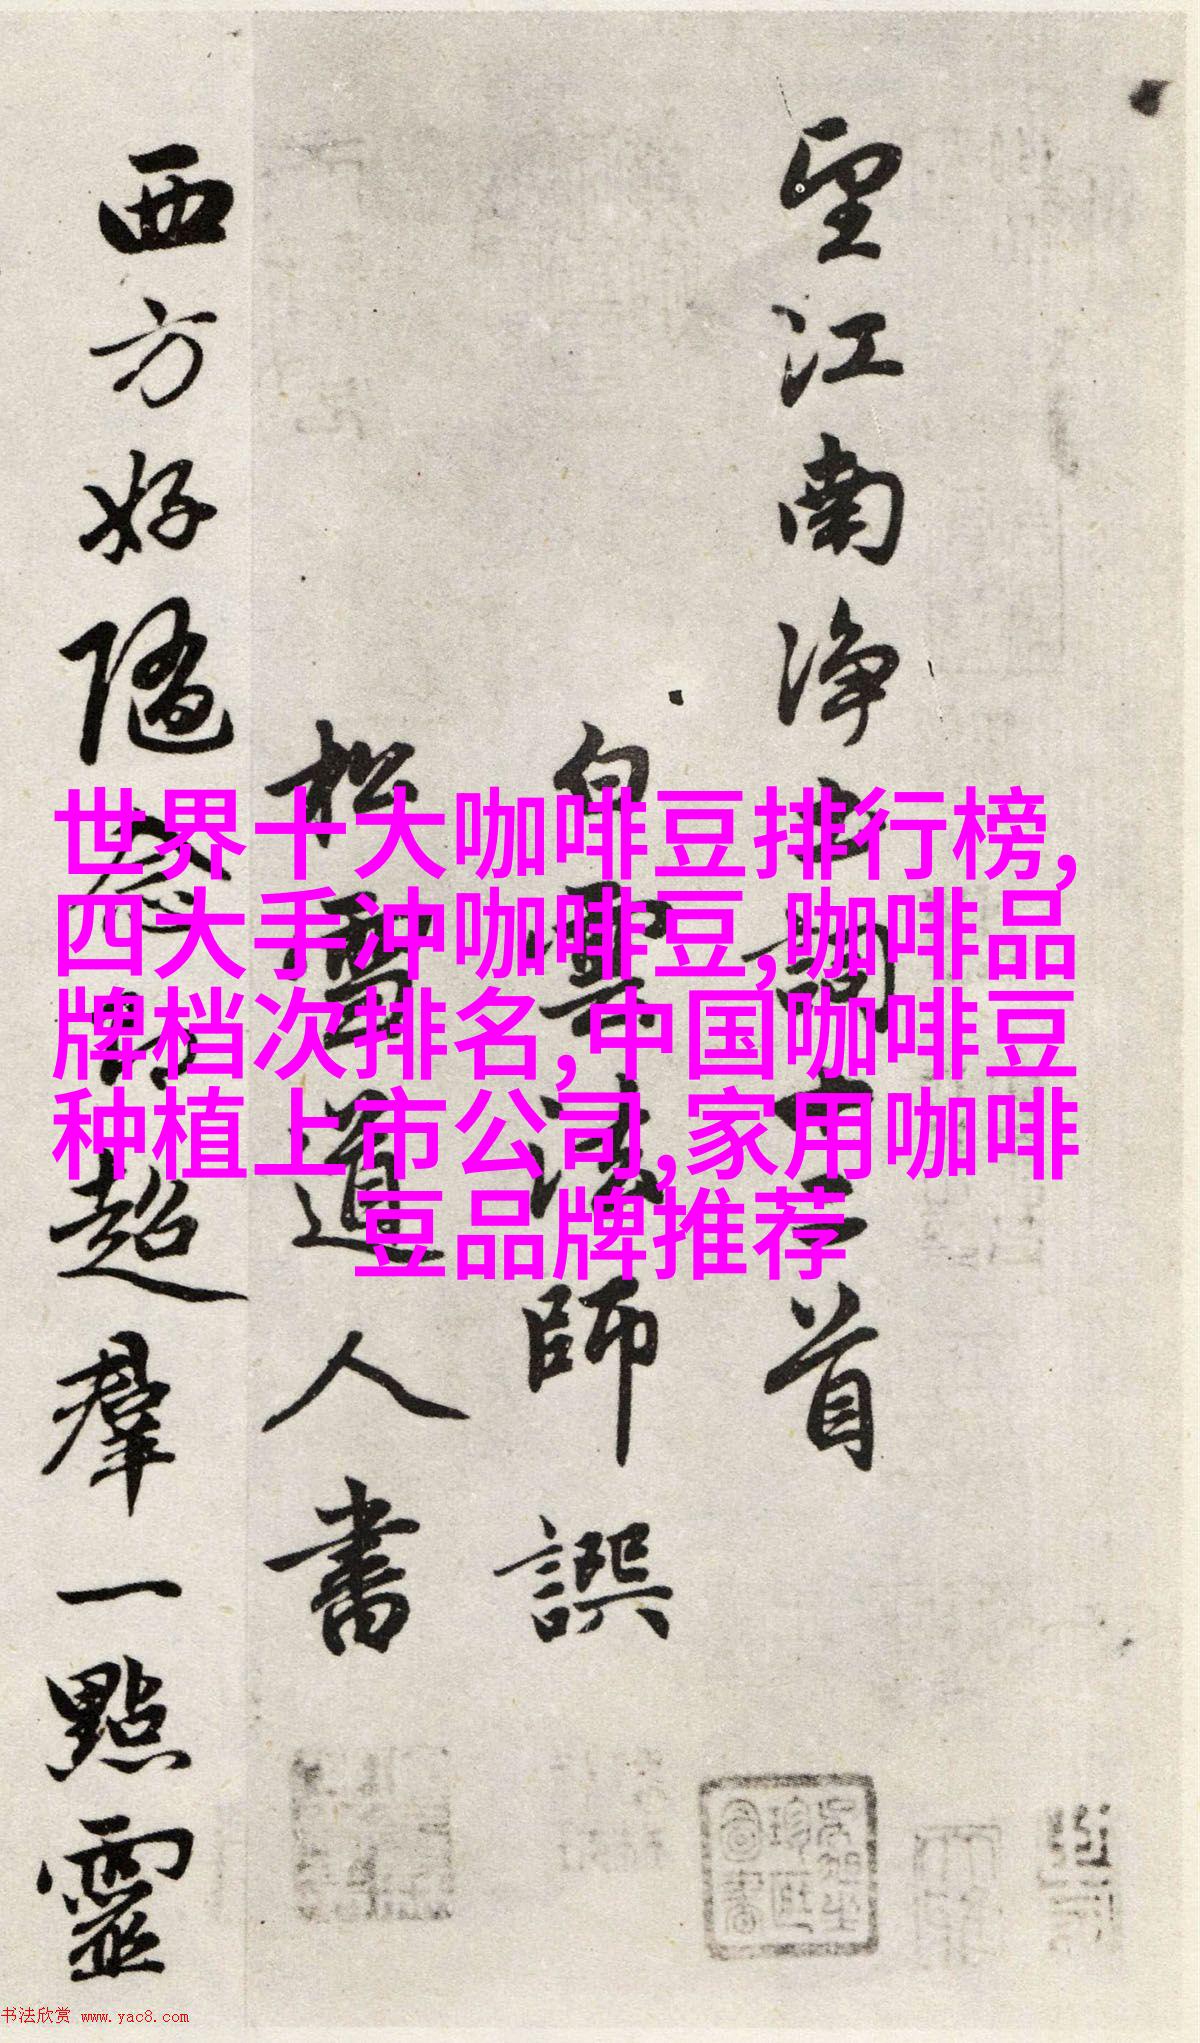 世界十大咖啡豆排行榜,
四大手冲咖啡豆,咖啡品
牌档次排名,中国咖啡豆
种植上市公司,家用咖啡
豆品牌推荐
望江南净土詞十二首
白雲法師譔
松雪道人書
西方好隨念即超羣一點靈
书法欣赏 www.yac8.com